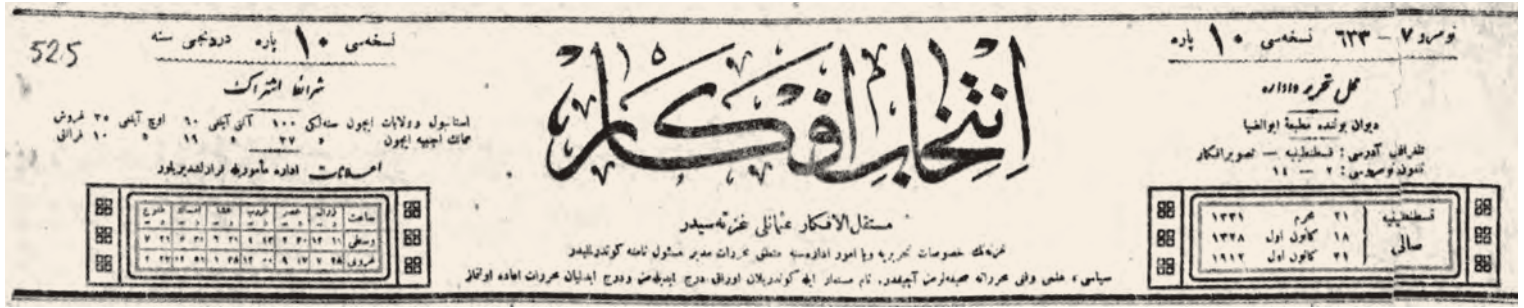 نومرو ٧ — ٦٣٣ نسخه‌سی ١٠ پاره
محل تحریر و اداره
دیوان یولنده مطبعهٔ ابوالضیا
تلغراف آدرسی : قسطنطینیه — تصویر افکار
تلفون نومروسی : ٢ — ١٤
قسطنطینیه
صالی
٢١ محرم ١٣٣١
١٨ كانون اول ١٣٢٨
٣١ كانون اول ١٩١٢
انتخاب افكار
مستقل الافكار عثمانلی غزته‌سیدر
غزته‌نك خصوصات تحریریه ویا امور اداره‌سنه متعلق محررات مدیر مسئول نامنه كوندرلیدر
سیاسی، علمی وفنی محرراته صحیفه‌لرمز آچیقدر. نام مستعار ایله كوندریلان اوراق درج ایدیلمز ودرج ایدلیان محررات اعاده اولنماز
525
نسخه‌سی ١٠ پاره دردنجی سنه
شرائط اشتراك
استانبول وولایات ایچون سنه‌لكی ١٠٠ آلتی آیلغی ٦٠ اوچ آیلغی ٣٥ غروش
ممالك اجنبیه ایچون » ٢٧ » ١٩ » ١٠ فرانق
اعلانات اداره مأموریله قرارلشدیریلور
ساعت زوال عصر غروب عشا امساك طلوع
وسطی
غروبی